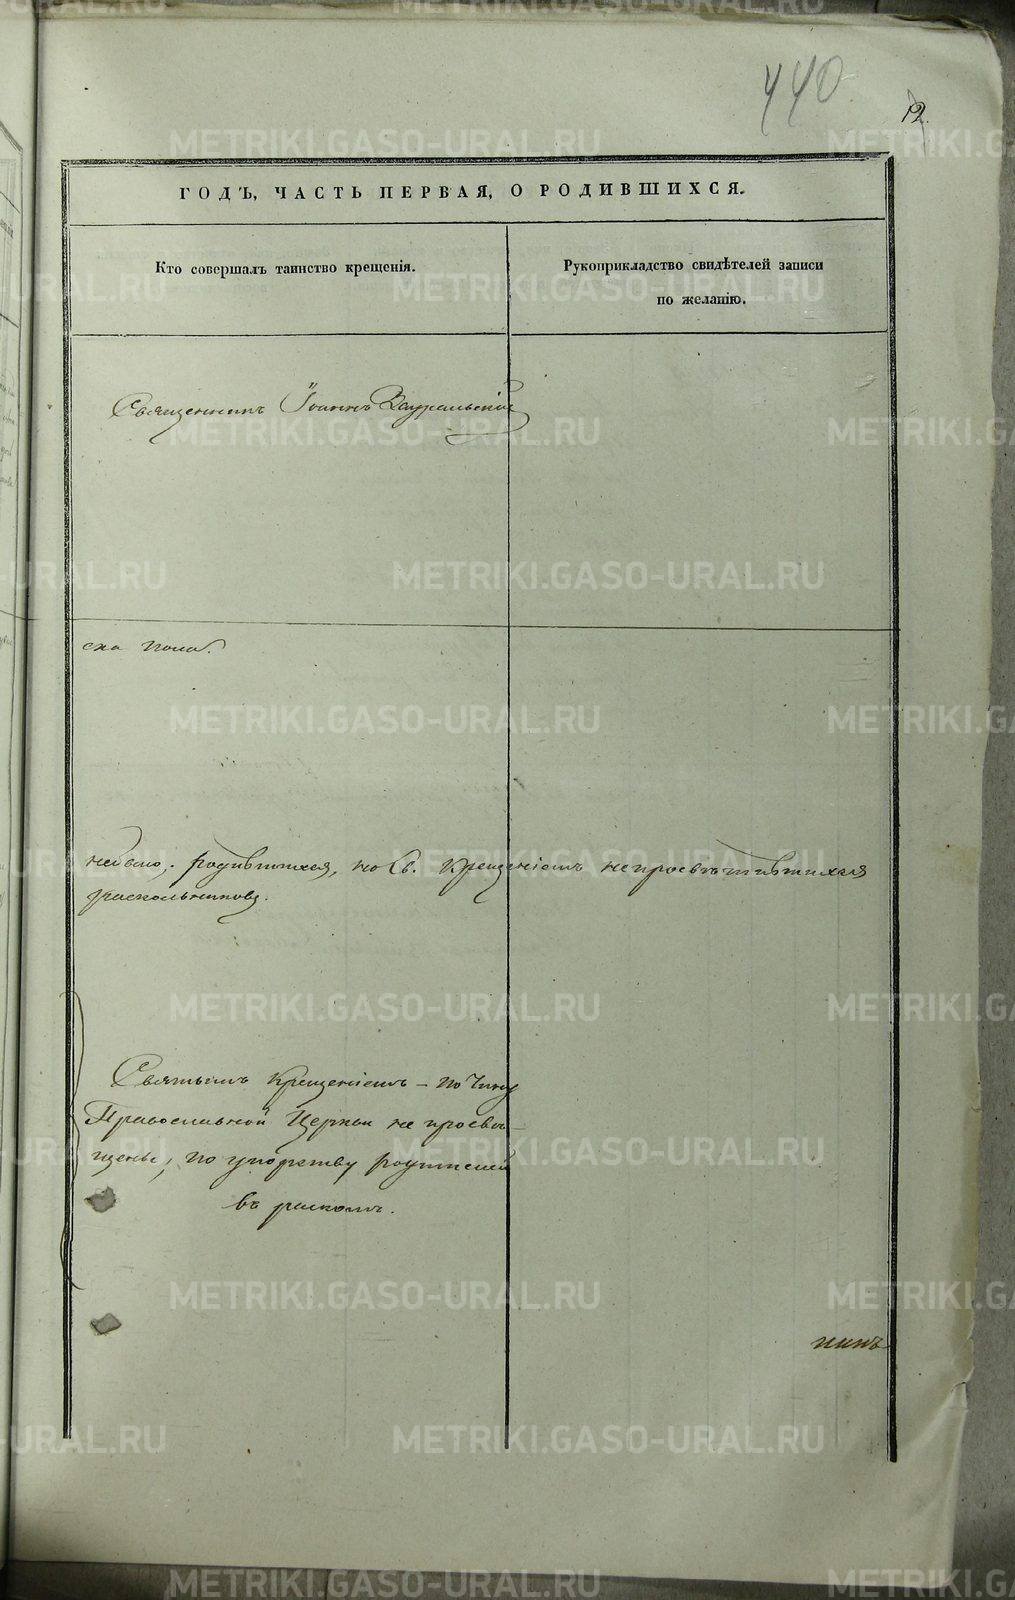 440
12.
ГОДЪ, ЧАСТЬ ПЕРВАЯ, О РОДИВШИХСЯ.
Кто совершалъ таинство крещенія.
Рукоприкладство свидѣтелей записи
по желанію.
Священникъ Іоаннъ Зауральскій
ска пола.
небыло; родившихся, но Св. Крещеніемъ непросвѣтившихся
раскольниковъ.
Святымъ Крещеніемъ – по Чину
Православной Церкви не просвѣ-
щены, по упорству родителей
въ расколѣ.
METRIKI.GASO-URAL.RU